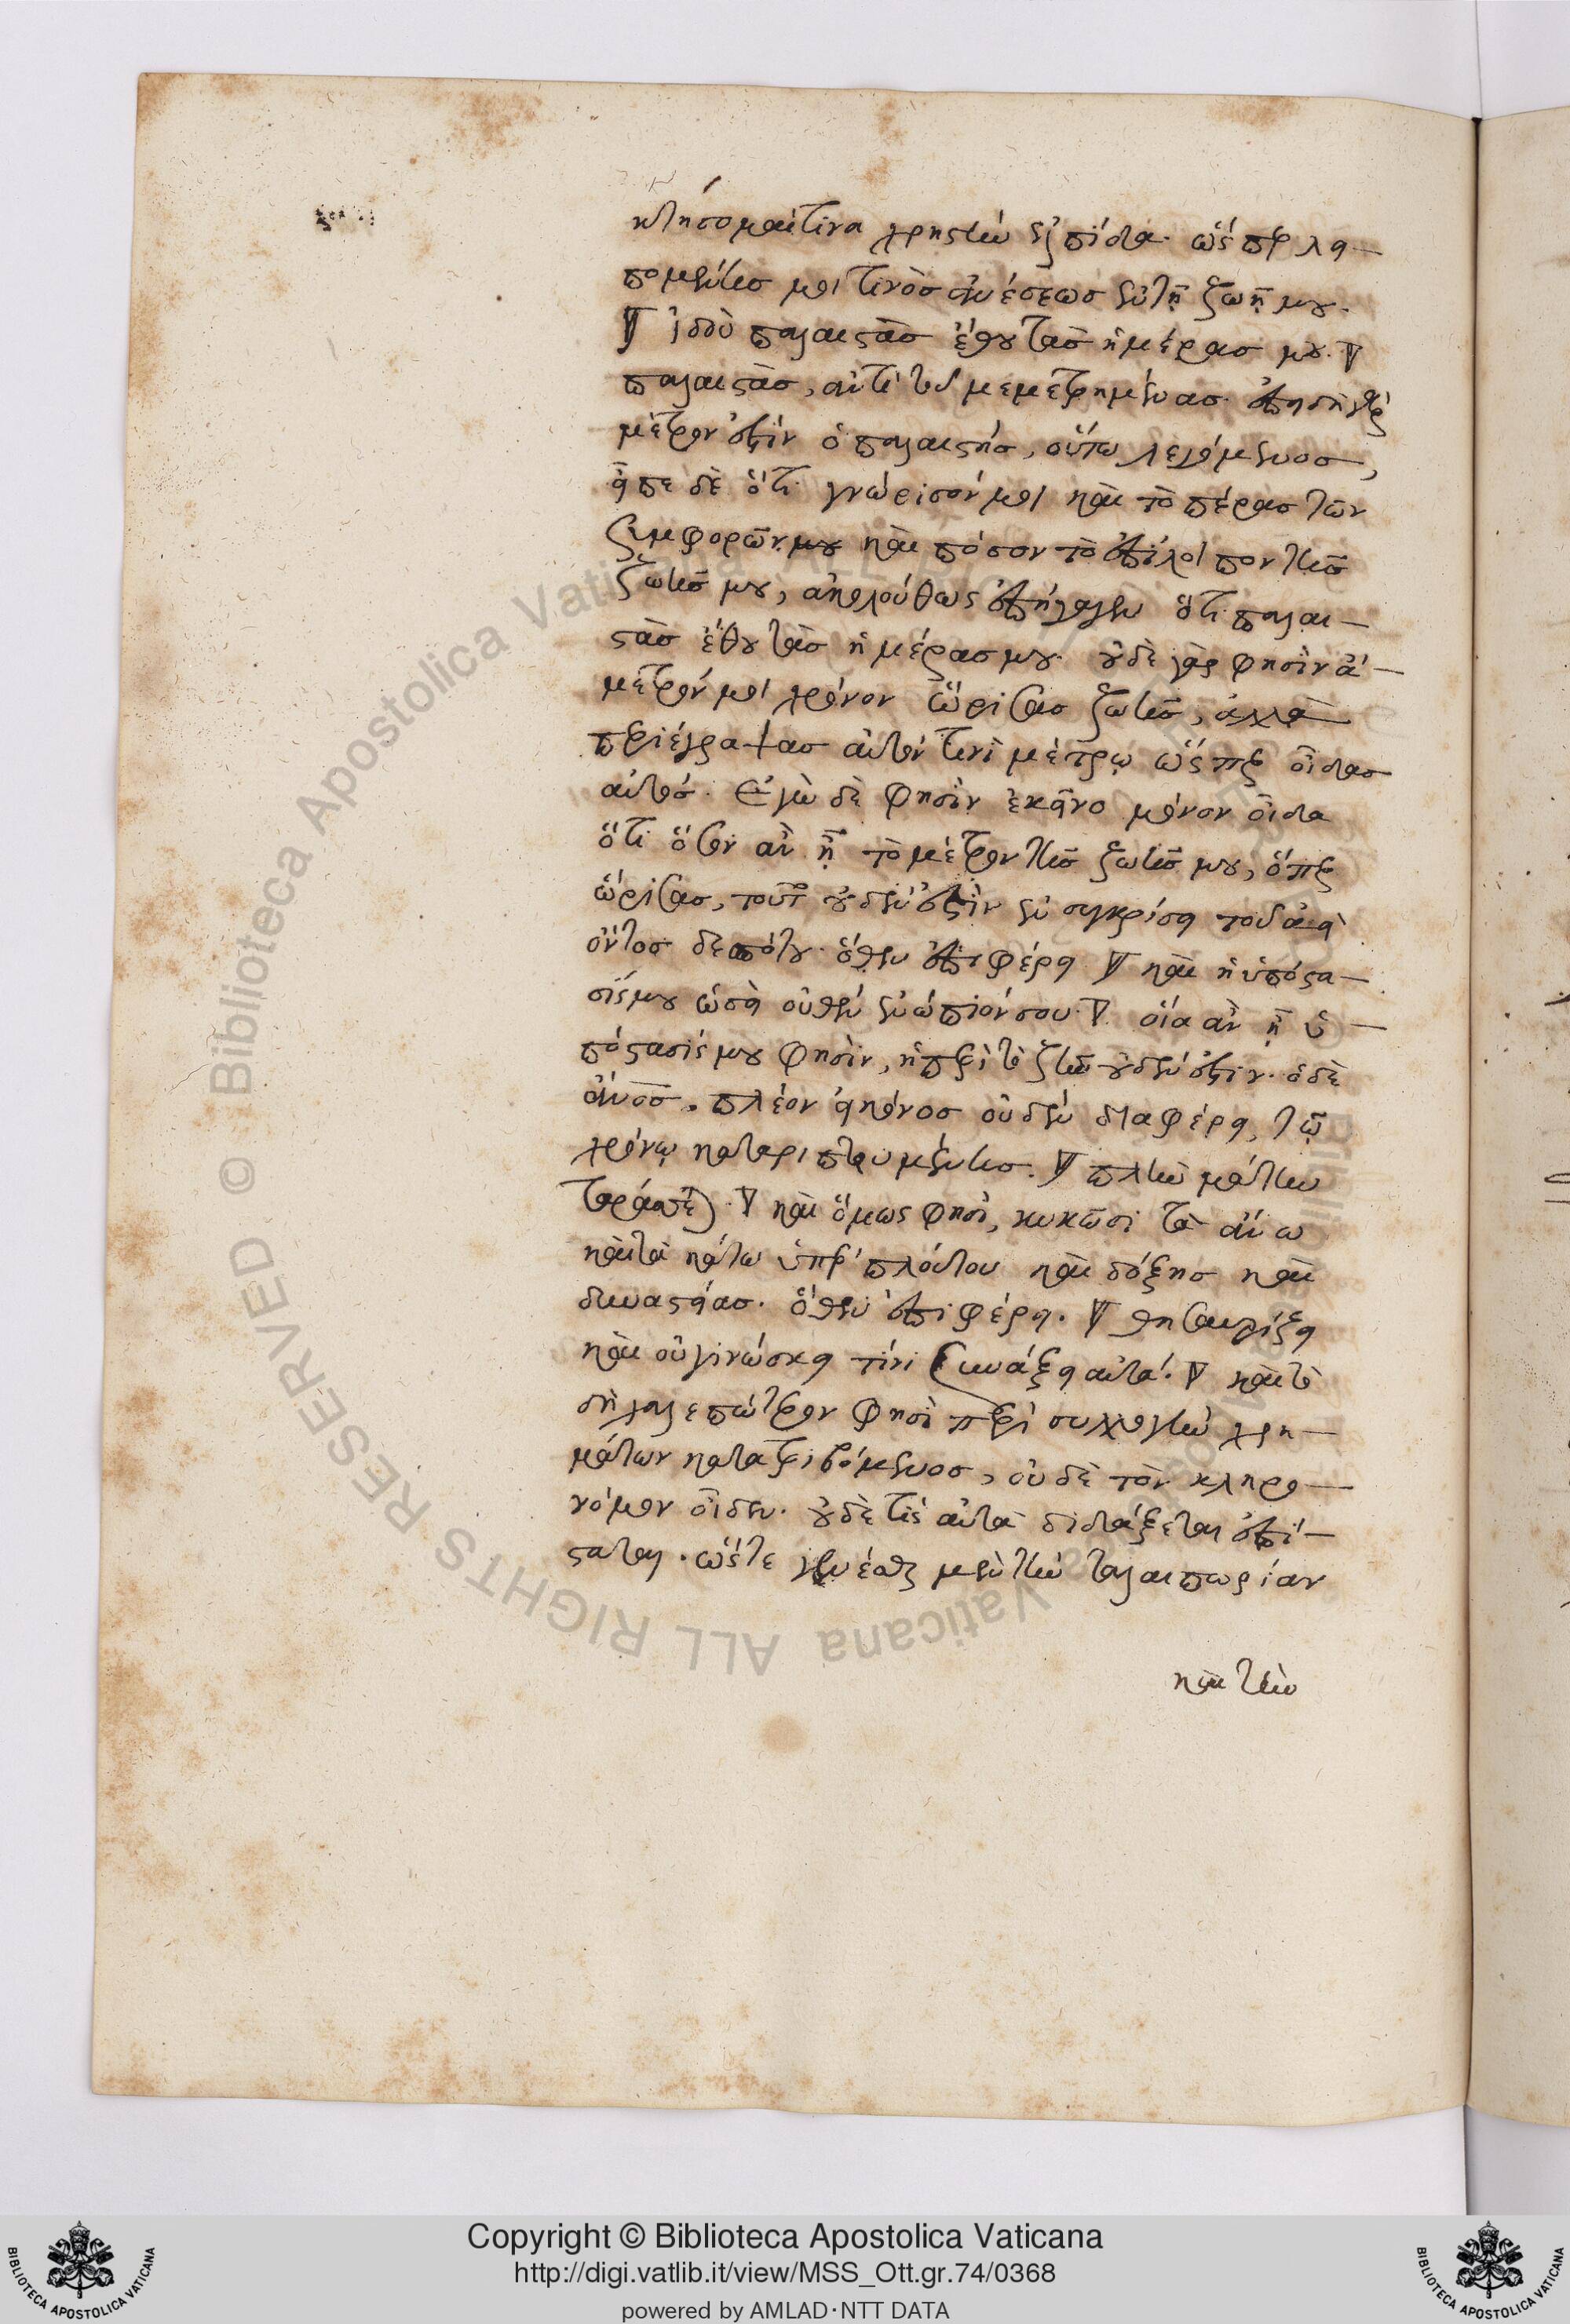 κτήσομαι τινα χρηστὴν ἐλπίδα. ὥσπερ λει-
πομένης μοι τινὸς ἀνέσεως ἐν τῇ ζωῇ μου.
ἰδοὺ παλαιστὰς ἔθου τὰς ἡμέρας μου.
παλαιστὰς, ἀντὶ τοῦ μεμετρημένας. ἐπειδὴ γὰρ
μέτρον ἐστὶν ὁ παλαιστής, οὕτω λεγόμενος,
εἶπε δὲ ὅτι γνώρισόν μοι καὶ τὸ πέρας τῶν
συμφορῶν μου καὶ πόσον τὸ ἐπίλοιπον τῆς
ζωῆς μου, ἀκολούθως ἐπήγαγεν ὅτι παλαι-
στὰς ἔθου τὰς ἡμέρας μου. οὐδὲ γάρ φησιν ἄ-
μετρόν μοι χρόνον ὥρισας ζωῆς, ἀλλὰ
περιέγραψας αὐτὸν τινὶ μέτρῳ ὥσπερ οἶδας
αὐτός. Ἐγὼ δὲ φησὶν ἐκεῖνο μόνον οἶδα
ὅτι ὅσον ἂν ᾖ τὸ μέτρον τῆς ζωῆς μου, ὅπερ
ὥρισας, τοῦτο οὐδέν ἐστιν ἐν συγκρίσει τοῦ ἀεὶ
ὄντος δεσπότου. ὅθεν ἐπιφέρει καὶ ἡ ὑπόστα-
σίς μου ὡσεὶ οὐθὲν ἐνώπιόν σου. οἵα ἂν ᾖ ὑ-
πόστασίς μου φησὶν, ἡ περὶ τὸ ζῆν οὐδέν ἐστιν. ὁ δὲ
ἄνοσ. πλέον εἰκόνος οὐδὲν διαφέρει, τῷ
χρόνῳ καταριπτουμένης. πλὴν μάτην
ταράσσεται. καὶ ὅμως φησὶ, κυκῶσι τὰ ἄνω
καὶ τὰ κάτω ὑπὲρ πλούτου καὶ δόξης καὶ
δυναστείας. ὅθεν ἐπιφέρει. θησαυρίζει
καὶ οὐ γινώσκει τίνι συνάξει αὐτά. καὶ τὸ
δὴ χαλεπώτερον φησὶ περὶ συλλογὴν χρη-
μάτων κατατριβόμενος, οὐδὲ τὸν κληρο-
νόμον οἶδεν. οὐδὲ τίς αὐτὰ διδάξεται ἐπί-
σταται. ὥστε γενέσθαι μὲν τὴν ταλαιπωρίαν
καὶ τὴν